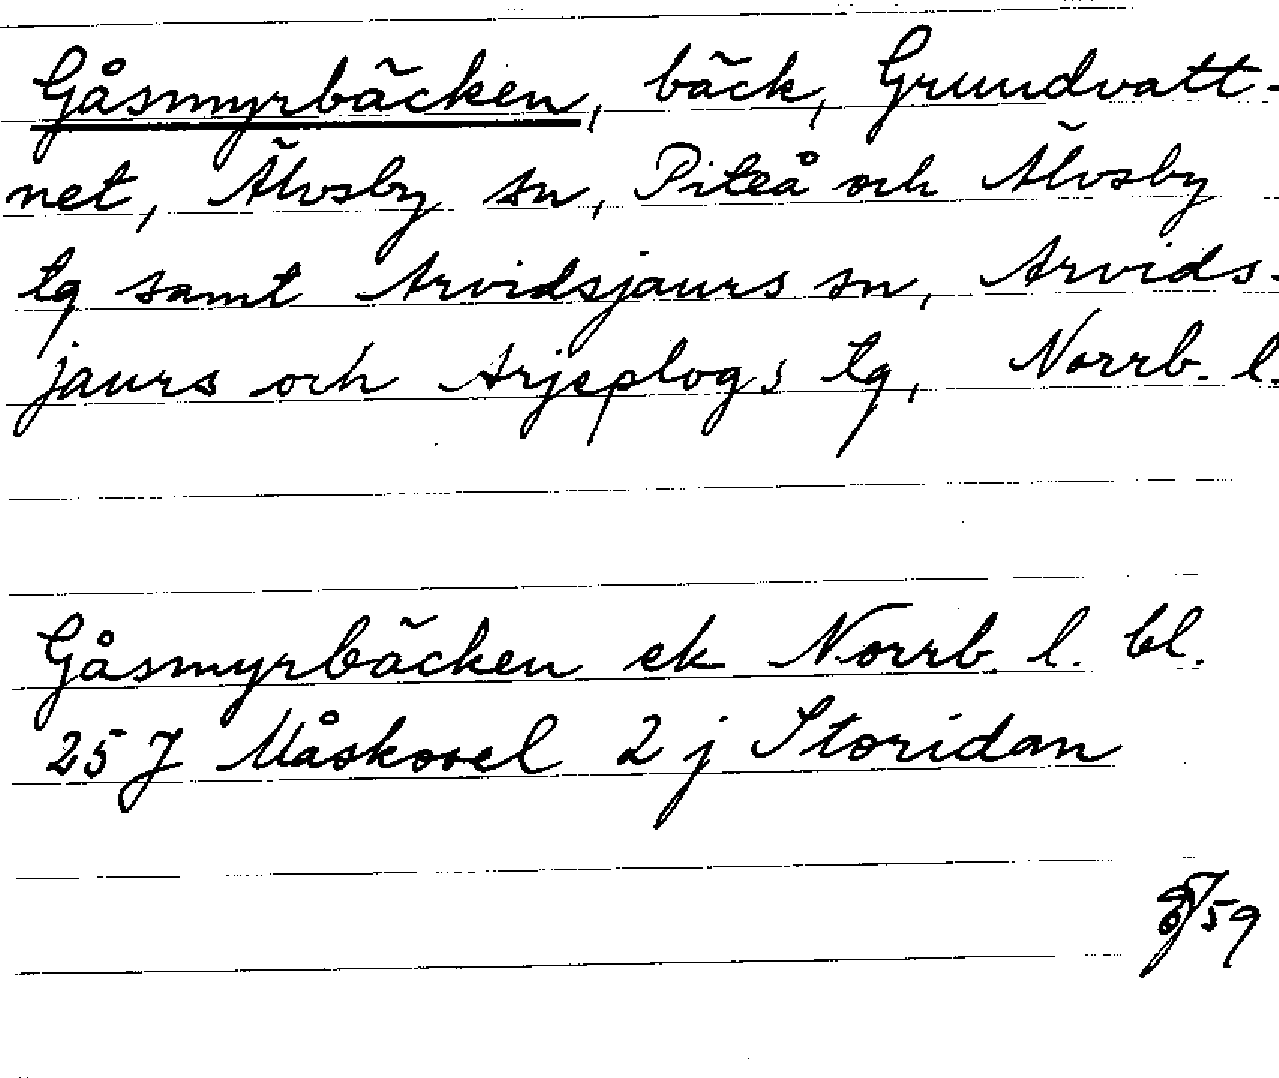 Gåsmyrbäcken, bäck, Grundvatt-
net, Älvsby sn, Piteå och Älvsby
tg samt Arvidsjaurs sn, Arvids-
jaurs och Arjeplogs tg, Norrb. l.
Gåsmyrbäcken ek Norrb. l. bl.
25 J Måskosel 2 j Storidan
59